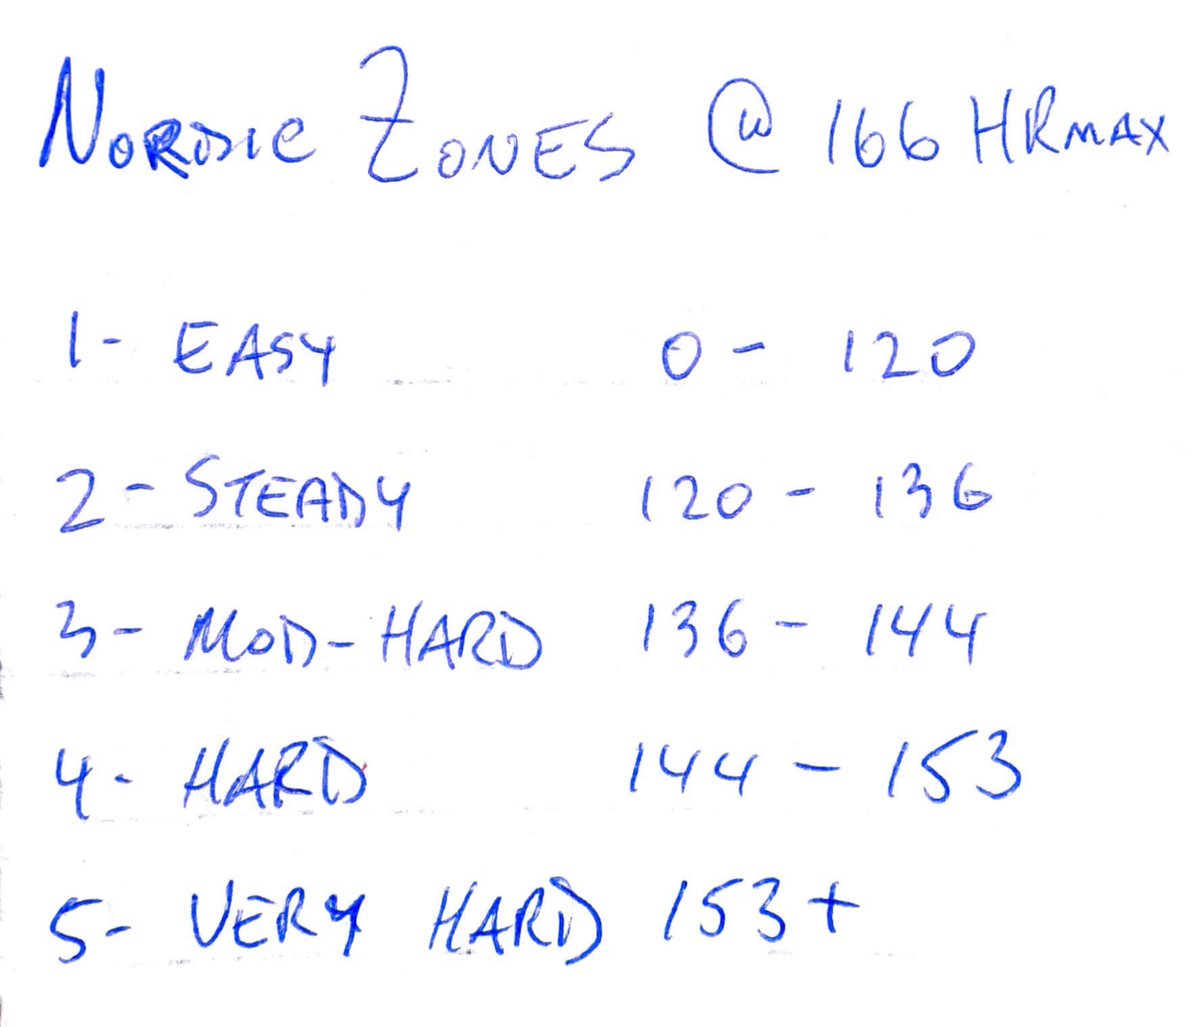 NORDIC ZONES @ 166 HRMAX
1- EASY 0 - 120
2- STEADY 120 - 136
3- MOD-HARD 136 - 144
4- HARD 144 - 153
5- VERY HARD 153+